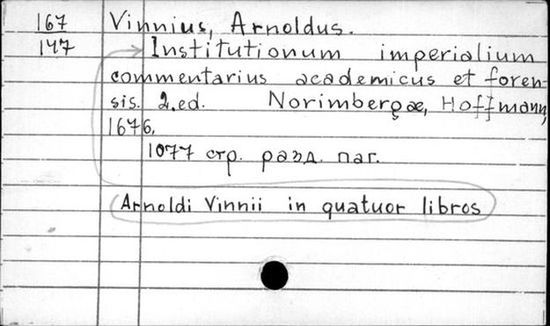 167 Vinnius, Arnoldus.
147 Institutionum imperialium
commentarius academicus et foren-
sis. 2.ed. Norimbergæ, Hoffmann,
1676.
1077 стр. разд. паг.
Arnoldi Vinnii in quatuor libros